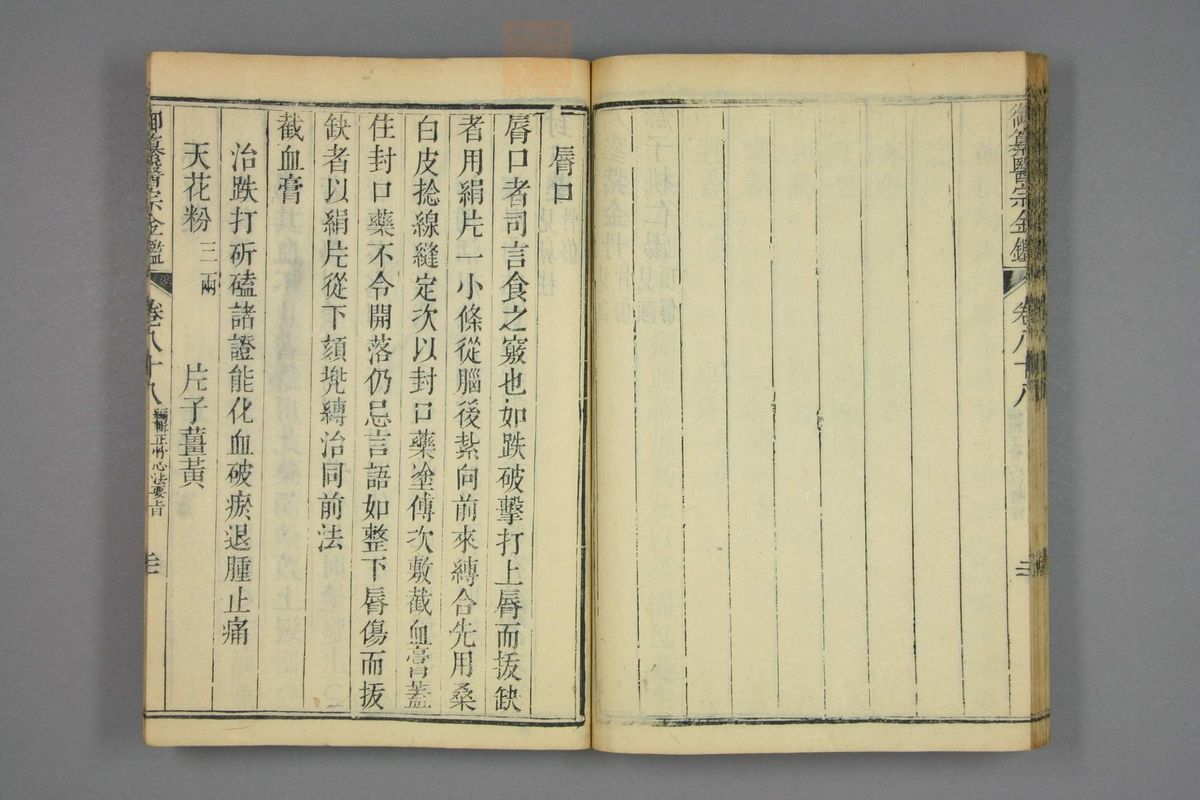 御纂醫宗金鑑
卷八十八
脣口
脣口者司言食之竅也如跌破擊打上脣而拔缺
者用絹片一小條從腦後紥向前來縛合先用桑
白皮捻線縫定次以封口藥塗傅次敷截血膏蓋
住封口藥不令開落仍忌言語如整下脣傷而拔
缺者以絹片從下頦兠縛治同前法
截血膏
治跌打斫磕諸證能化血破瘀退腫止痛
天花粉三兩 片子薑黃
御纂醫宗金鑑 卷八十八 編輯正骨心法要旨